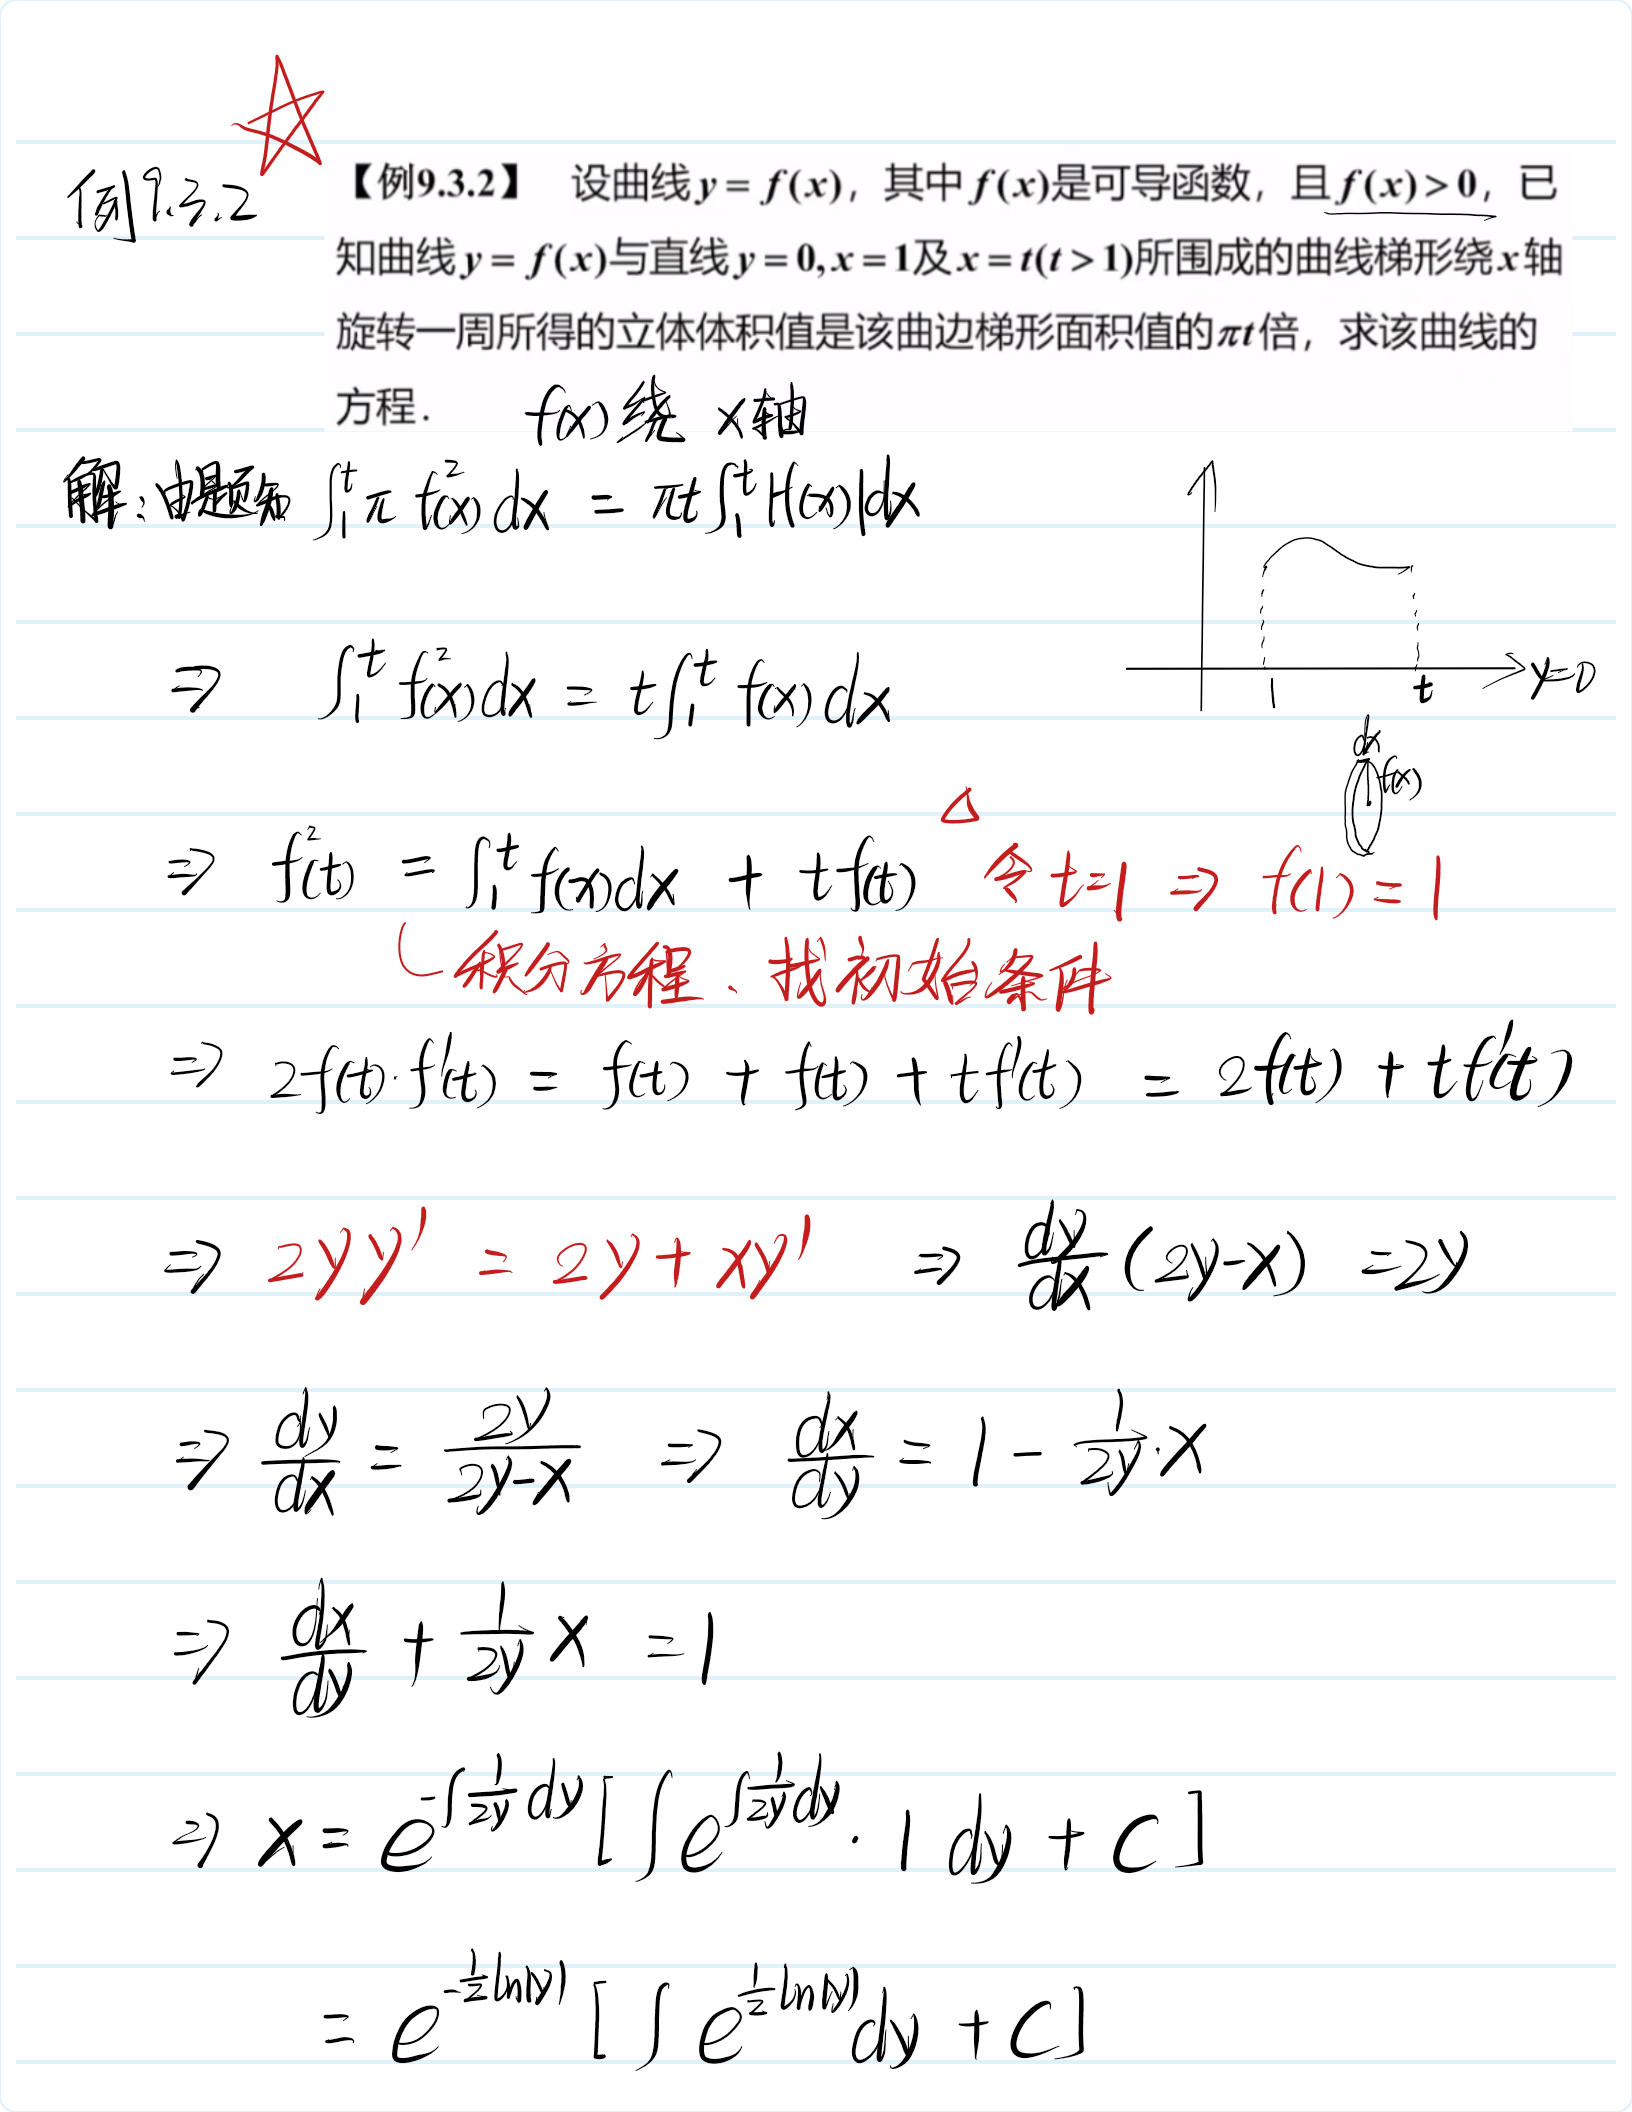 例9.3.2
【例9.3.2】 设曲线y = f(x)，其中f(x)是可导函数，且f(x)>0，已
知曲线y = f(x)与直线y = 0, x = 1及x = t(t > 1)所围成的曲线梯形绕x轴
旋转一周所得的立体体积值是该曲边梯形面积值的πt倍，求该曲线的
方程．
f(x)绕 x轴
解：由题知 ∫₁ᵗ π f²(x) dx = πt ∫₁ᵗ |f(x)| dx
1 t y=0
⇒ ∫₁ᵗ f²(x) dx = t ∫₁ᵗ f(x) dx
dx
f(x)
⇒ f²(t) = ∫₁ᵗ f(x)dx + t f(t) △ 令 t=1 ⇒ f(1) = 1
积分方程、找初始条件
⇒ 2f(t)·f'(t) = f(t) + f(t) + t f'(t) = 2f(t) + t f'(t)
⇒ 2yy' = 2y + xy' ⇒ dy/dx (2y-x) = 2y
⇒ dy/dx = 2y/(2y-x) ⇒ dx/dy = 1 - 1/(2y)·x
⇒ dx/dy + 1/(2y) x = 1
⇒ x = e^(-∫ 1/(2y) dy) [∫ e^(∫ 1/(2y) dy) · 1 dy + C]
= e^(-1/2 ln|y|) [∫ e^(1/2 ln|y|) dy + C]